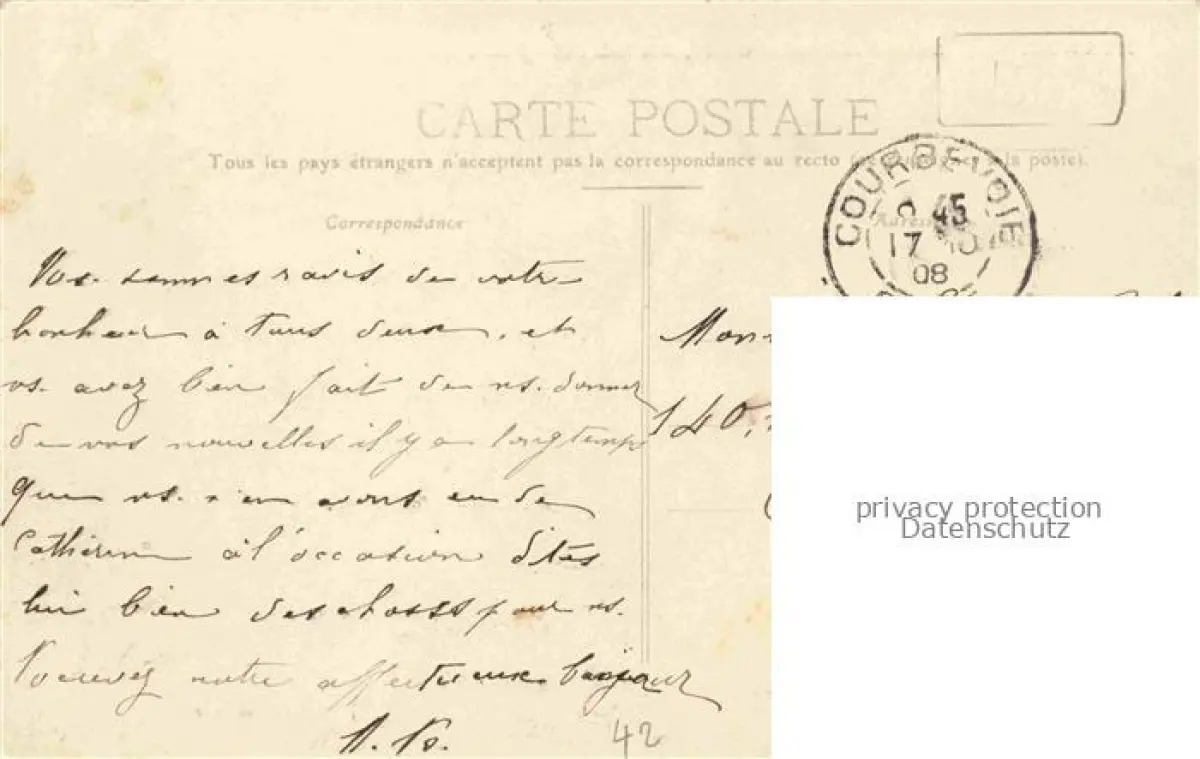 CARTE POSTALE
Tous les pays étrangers n'acceptent pas la correspondance au recto à la poste).
Correspondance
COURBEVOIE
45
17 10
08
sommes ravis de votre
bonheur à tous deux, et
vs. avez bien fait de ns. donner
de vos nouvelles il y a longtemps
que ns. n'en avons eu de
Catherine à l'occasion dites
lui bien des choses pour ns.
Recevez notre affectueux bonjour
42
Mon
140,
privacy protection
Datenschutz